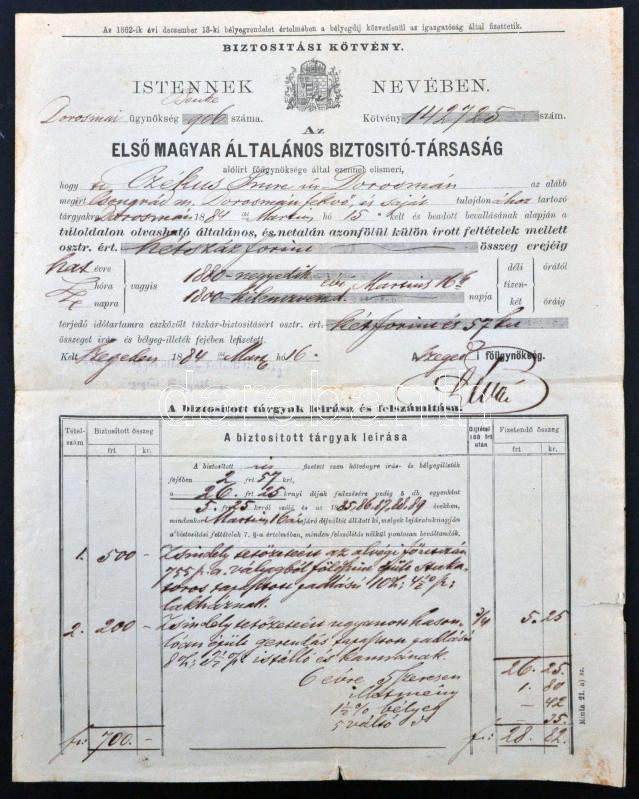 Az 1862-ik évi deczember 13-ki bélyegrendelet értelmében a bélyegdij közvetlenül az igazgatóság által fizettetik.
BIZTOSITÁSI KÖTVÉNY.
ISTENNEK NEVÉBEN.
Dorosmai ügynökség 906 száma. Kötvény 142725 szám.
Az
ELSŐ MAGYAR ÁLTALÁNOS BIZTOSITÓ-TÁRSASÁG
alólirt főügynöksége által ezennel elismeri,
hogy Imre úr Dorosmán az alább
megirt Csongrád m. Dorosmán fekvő, és saját tulajdonához tartozó
tárgyakra Dorosmán 1884 Martius hó 15 kelt és beadott bevallásának alapján a
túloldalon olvasható általános, és netalán azonfölül külön irott feltételek mellett
osztr. ért. hétszáz forint összeg erejéig
hat évre 1880-negyedik évi Martius 16 déli órától
hóra vagyis napja tizen-
napra 1800-kilenczvend. két óráig
terjedő időtartamra eszközölt tűzkár-biztositásért osztr. ért. két forint és 57 kr
összeget irás- és bélyeg-illeték fejében lefizetett.
Kelt Szegeden 1884 Mart hó 16. A Szeged i főügynökség.
A biztositott tárgyak leirása és felszámitása.
Tétel-szám Biztositott összeg A biztositott tárgyak leirása Dijtétel 100 frt után Fizetendő összeg
frt kr. frt kr.
A biztositott úr fizetett ezen kötvényre irás- és bélyegilleték
fejében 2 frt 57 krt,
a 26 frt 25 krnyi dijak fedezésére pedig 5 db, egyenkint
5 frt 25 krról szóló és az 1885, 86, 87, 88, 89 években,
mindenkor Martius 16án lejáró dijváltót állitott ki, melyek lejáratuk napján
a biztositási feltételek 7. §-a értelmében, minden felszólitás nélkül pontosan beváltandók.
1. 500 – Zsindely tetőzetért az alvégi főutczán
755 p. a. vályogból épült
tapasztott padlásu 10
lakházának.
2. 200 – Zsindely tetőzetért ugyanott hason-
lóan épült gerendás tapasztott padlásu 3/4 5. 25
8 istálló és kamrának.
6 évre 5 szörösen 26. 25
1. 80
1½% bélyeg – 42
5 váltó – 35
frt 700. – frt 28. 82
Minta 21. a) sz.
darabanth